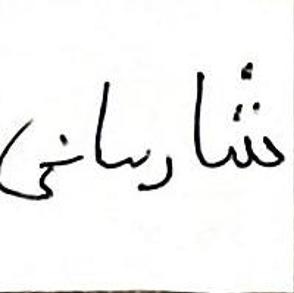 شارسانی